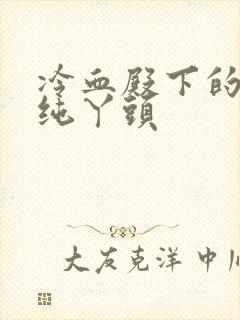 冷血殿下的
纯丫头
大友克洋 中